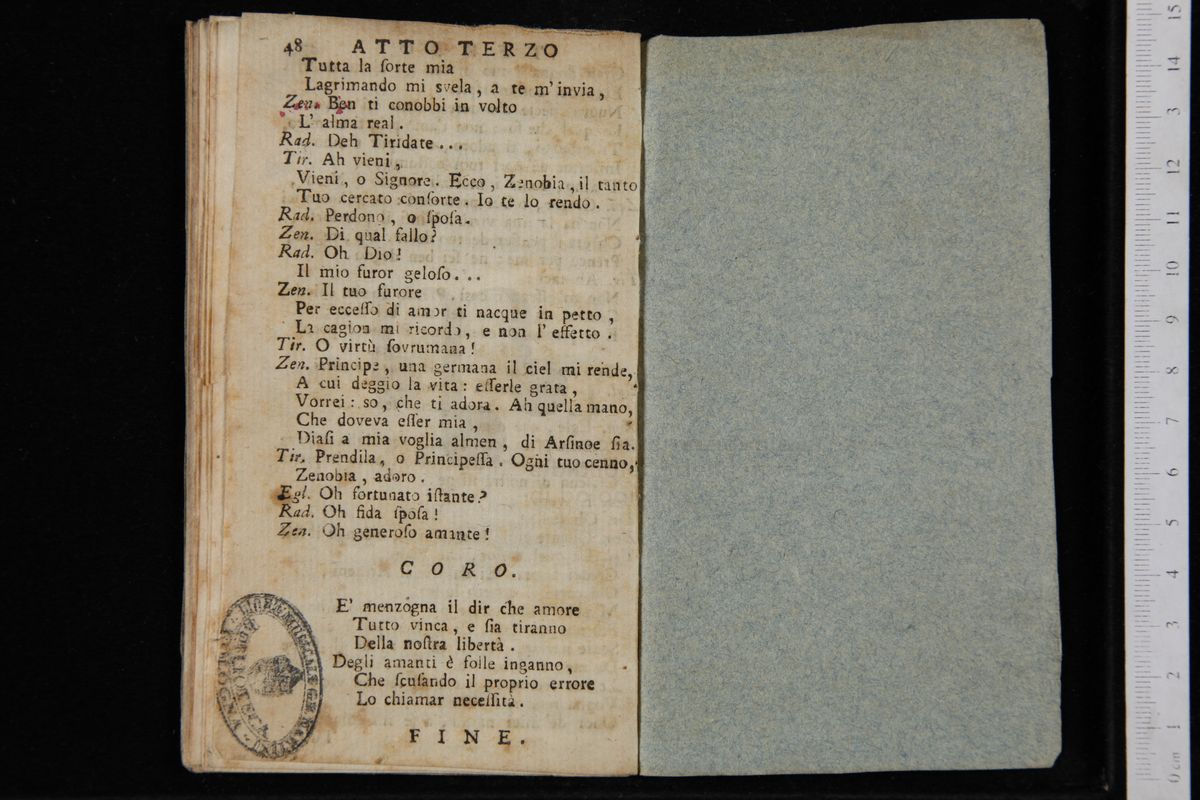 48 ATTO TERZO
Tutta la ſorte mia
Lagrimando mi svela, a te m'invia,
Zen. Ben ti conobbi in volto
L' alma real.
Rad. Deh Tiridate...
Tir. Ah vieni,
Vieni, o Signore. Ecco, Zenobia, il tanto
Tuo cercato conſorte. Io te lo rendo.
Rad. Perdono, o ſpoſa.
Zen. Di qual fallo?
Rad. Oh Dio!
Il mio furor geloſo...
Zen. Il tuo furore
Per ecceſſo di amor ti nacque in petto,
La cagion mi ricordo, e non l' effetto.
Tir. O virtù ſovrumana!
Zen. Principe, una germana il ciel mi rende,
A cui deggio la vita: eſſerle grata,
Vorrei: so, che ti adora. Ah quella mano,
Che doveva eſſer mia,
Diaſi a mia voglia almen, di Arſinoe ſia.
Tir. Prendila, o Principeſſa. Ogni tuo cenno,
Zenobia, adoro.
Egl. Oh fortunato iſtante?
Rad. Oh fida ſpoſa!
Zen. Oh generoſo amante!
CORO.
E' menzogna il dir che amore
Tutto vinca, e ſia tiranno
Della noſtra libertà.
Degli amanti è folle inganno,
Che ſcuſando il proprio errore
Lo chiamar neceſſità.
FINE.
0 cm 1 2 3 4 5 6 7 8 9 10 11 12 13 14 15